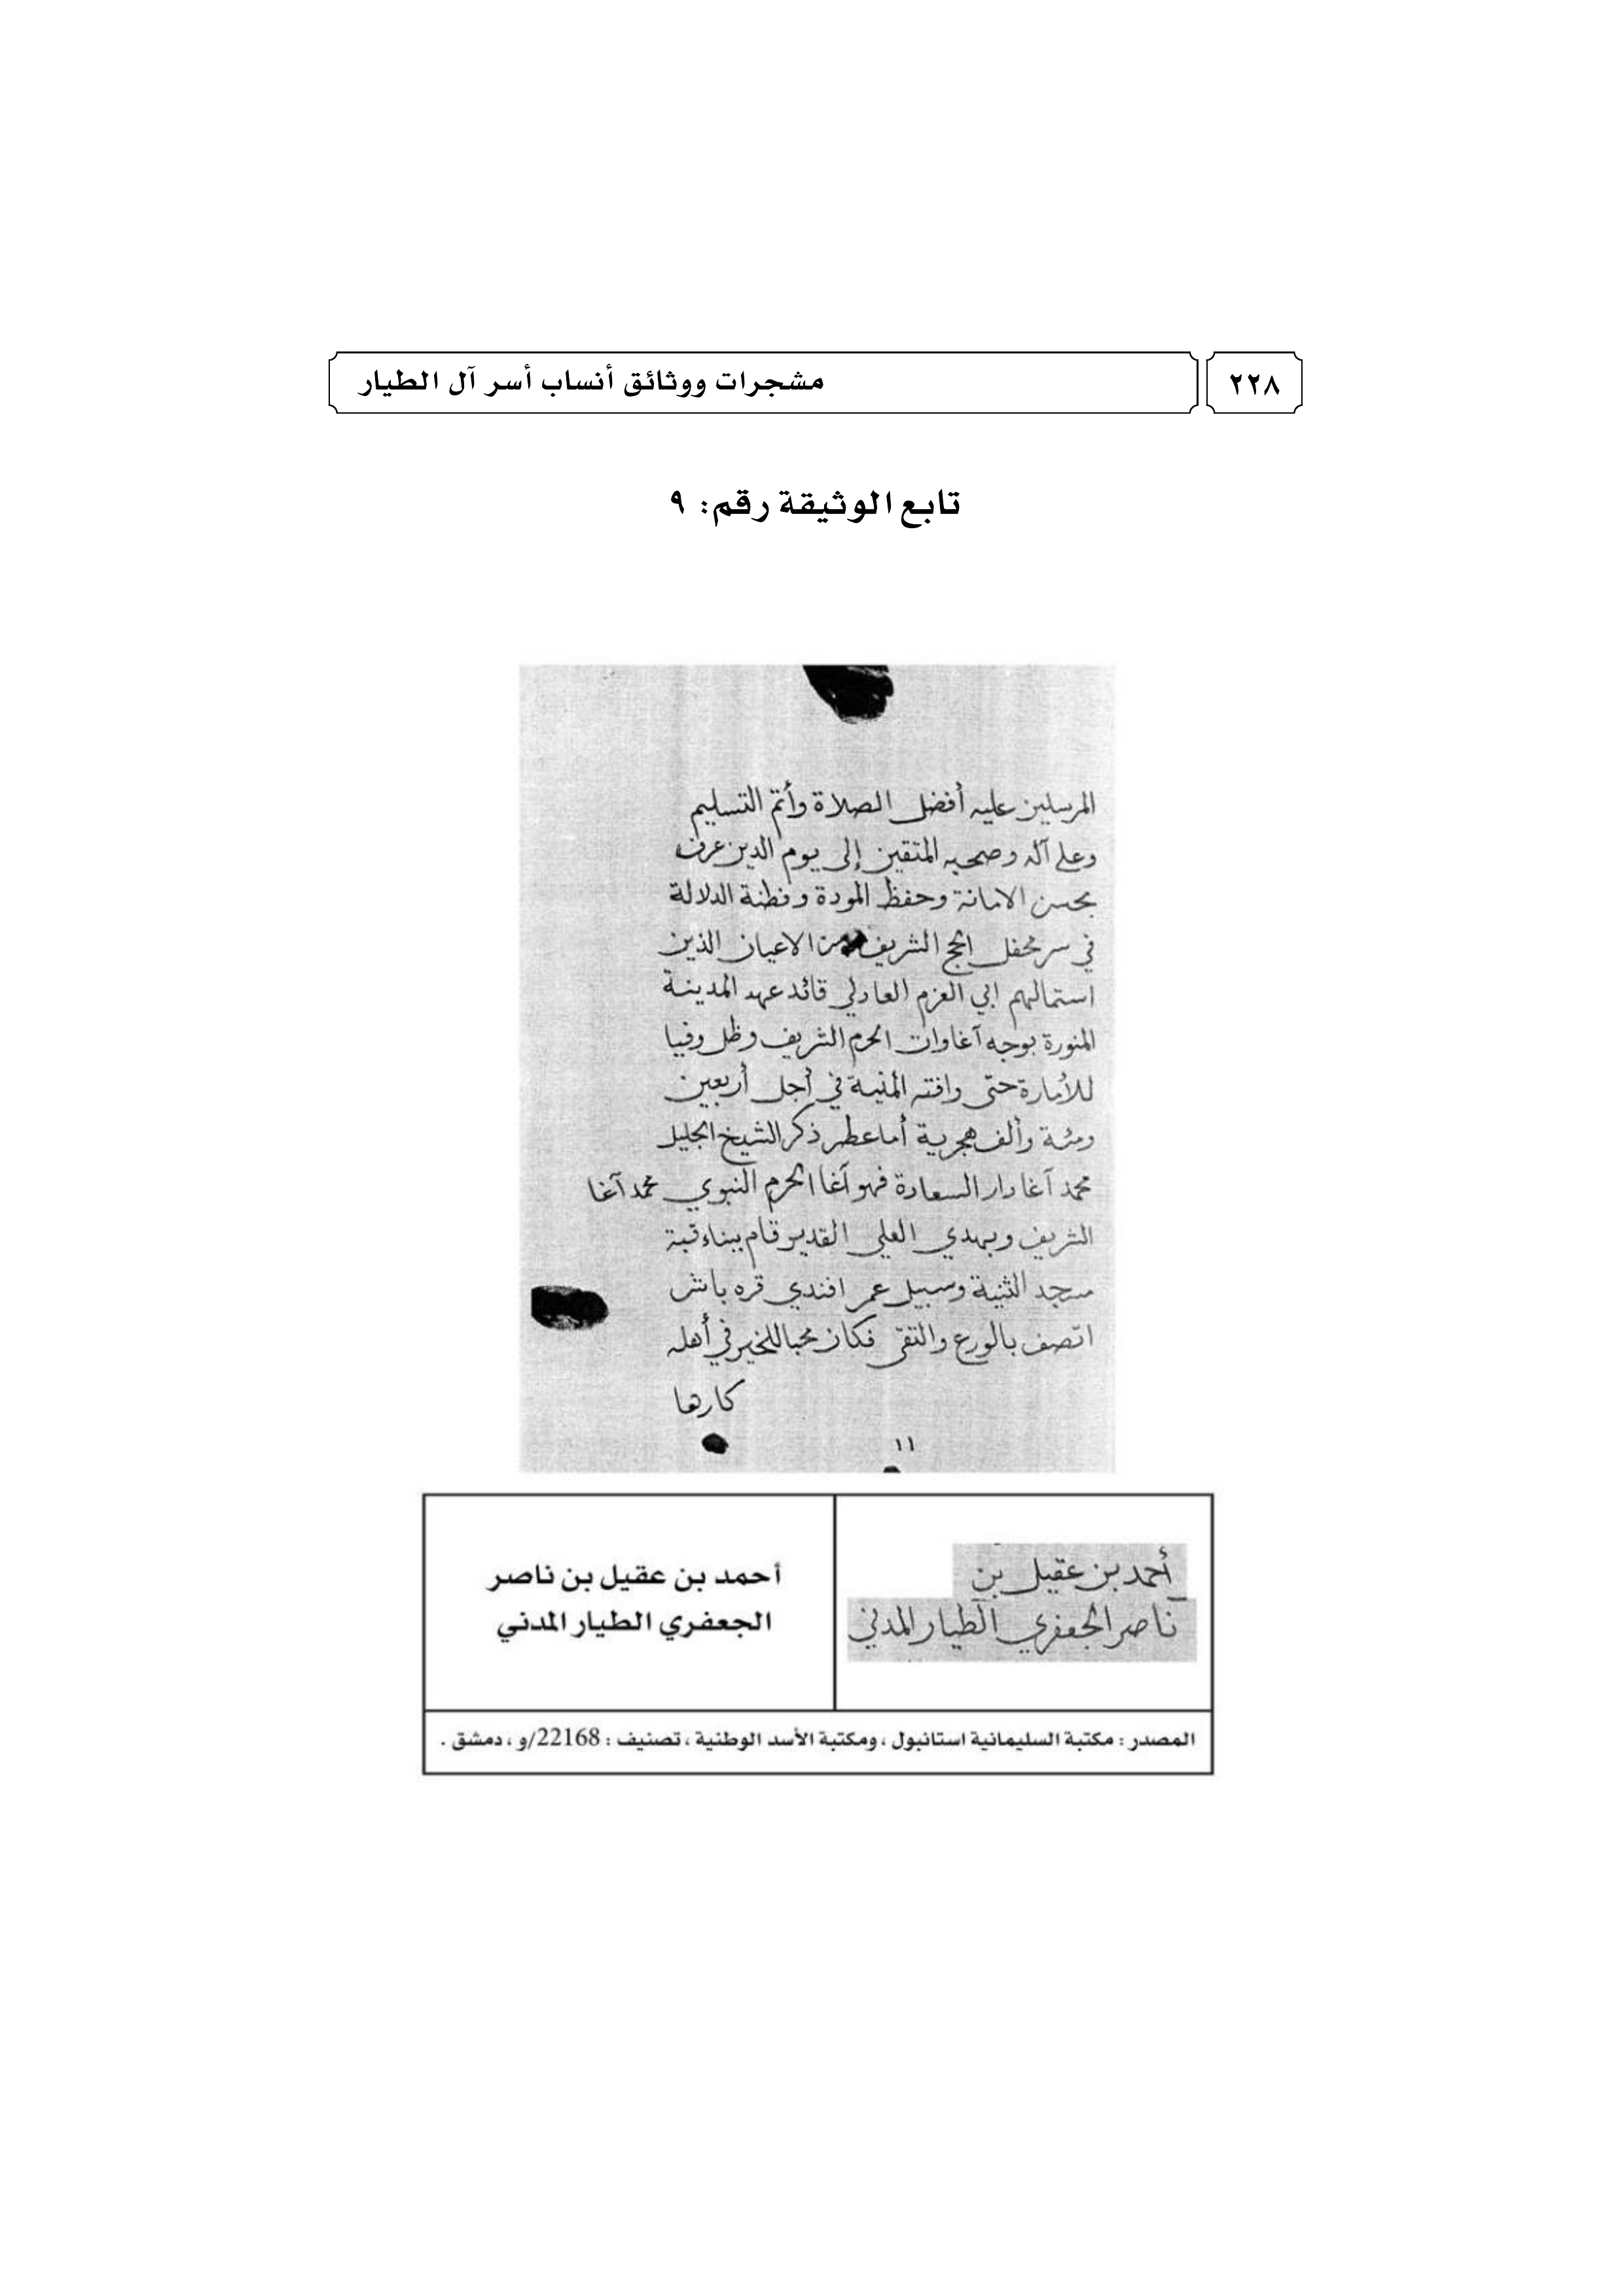 ٢٢٨
مشجرات ووثائق أنساب أسر آل الطيار
تابع الوثيقة رقم: ٩
المرسلين عليه أفضل الصلاة وأتم التسليم
وعلى آله وصحبه المتقين إلى يوم الدين عرف
بحسن الامانة وحفظ المودة وفطنة الدلالة
في سر محفل الحج الشريف من الاعيان الذين
استمالهم ابي العزم العادلي قائد عهد المدينة
المنورة بوجه آغاوات الحرم الشريف وظل وفيا
للأمارة حتى وافته المنية في أجل أربعين
ومئة وألف هجرية أما عطر ذكر الشيخ الجليل
محمد آغا دار السعادة فهو آغا الحرم النبوي محمد آغا
الشريف وبهدي العلي القدير قام ببناء قبة
مسجد الثنية وسبيل عمر افندي قره باش
اتصف بالورع والتقى فكان محبا للخير في أهله
كارها
١١
أحمد بن عقيل بن
ناصر الجعفري الطيار المدني
أحمد بن عقيل بن ناصر
الجعفري الطيار المدني
المصدر : مكتبة السليمانية استانبول ، ومكتبة الأسد الوطنية ، تصنيف : 22168/و ، دمشق .